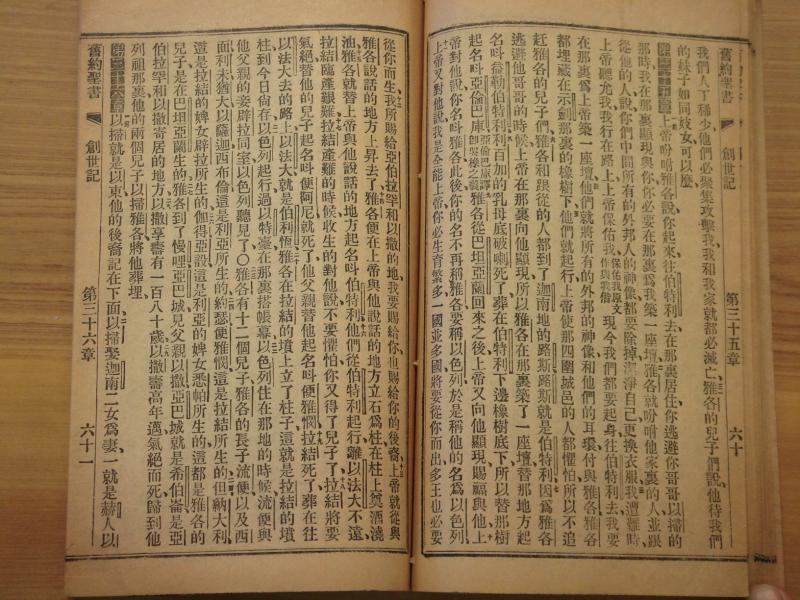 舊約聖書 創世記 第三十五章 六十
我們人丁稀少他們必聚集攻擊我我和我家就都必滅亡雅各的兒子們說他待我們
的妹子如同妓女可以麼
第三十五章上帝吩咐雅各說你起來往伯特利去在那裏居住你逃避你哥哥以掃的
那時我在那裏顯現與你你必要在那裏爲我築一座壇雅各就吩咐他家裏的人並跟
從他的人說你們中間所有的外邦人的神像都要除掉潔淨自己更換衣服我遭難時
上帝聽允我我行在路上上帝保佑我保佑我原文作與我偕現今我們都要起身往伯特利去我要
在那裏爲上帝築一座壇他們就將所有的外邦的神像和他們的耳環付與雅各雅各
都埋藏在示劍那裏的橡樹下他們就起行上帝使那四圍城邑的人都懼怕所以不追
赶雅各的兒子們雅各和跟從的人都到了迦南地的路斯路斯就是伯特利因爲雅各
逃避他哥哥的時候上帝在那裏向他顯現所以雅各在那裏築了一座壇替那地方起
名呌益勒伯特利利百加的乳母底破喇死了葬在伯特利下邊橡樹底下所以替那樹
起名呌亞倫巴庫亞倫巴庫譯卽哭橡之義雅各從巴坦亞蘭回來之後上帝又向他顯現賜福與他上
帝對他說你名雅各此後你的名不再稱雅各要稱以色列於是稱他的名爲以色列
上帝又對他說我是全能上帝你必生育繁多一國並多國將要從你而出多王也必要
從你而生我所賜給亞伯拉罕和以撒的地我要賜給你也賜給你的後裔上帝就從與
雅各說話的地方上昇去了雅各便在上帝與他說話的地方立石爲柱在柱上奠酒澆
油雅各就替上帝與他說話的地方起名呌伯特利他們從伯特利起行離以法大不遠
拉結臨產艱難拉結產難的時候收生的對他說不要懼怕你又得了兒子了拉結將要
氣絕替他的兒子起名呌便阿尼就死了他父親替他起名呌便雅憫拉結死了葬在往
以法大去的路上以法大就是伯利恆雅各在拉結的墳上立了柱子這就是拉結的墳
柱到今日尙存以色列起行過以特臺在那裏搭帳幕以色列住在那地的時候流便與
他父親的妾辟拉同室以色列聽見了○雅各有十二個兒子雅各的長子流便以及西
面利未猶大以薩迦西布倫這是利亞所生的約瑟便雅憫這是拉結所生的但納大利
這是拉結的婢女辟拉所生的伽得亞設這是利亞的婢女悉帕所生的這都是雅各的
兒子是在巴坦亞蘭生的雅各到了慢哩亞巴城見父親以撒亞巴城就是希伯崙是亞
伯拉罕和以撒寄居的地方以撒享壽有一百八十歲以撒壽高年邁氣絕而死歸到他
列祖那裏他的兩個兒子以掃雅各將他葬埋
第三十六章以掃就是以東他的後裔記在下面以掃娶迦南二女爲妻一就是赫人以
舊約聖書 創世記 第三十六章 六十一